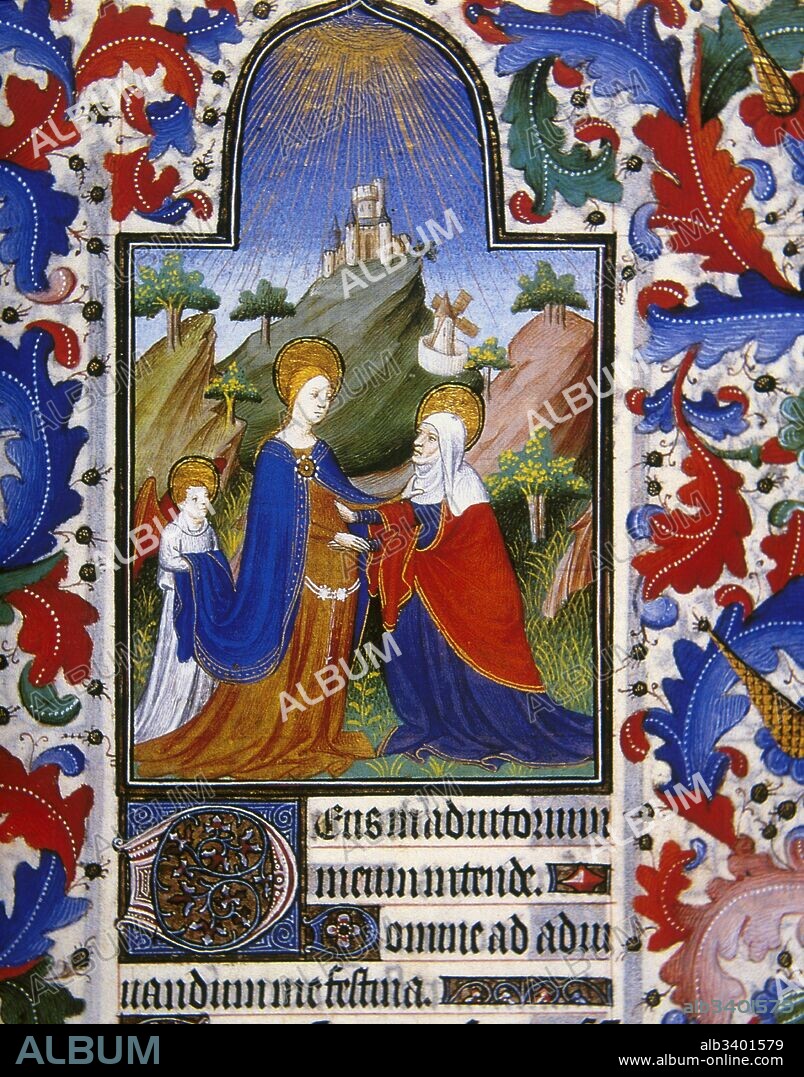 Deus in adiutorium
meum intende.
Domine ad adiu
uandum me festina.
alb3401579
ALBUM
alb3401579
www.album-online.com